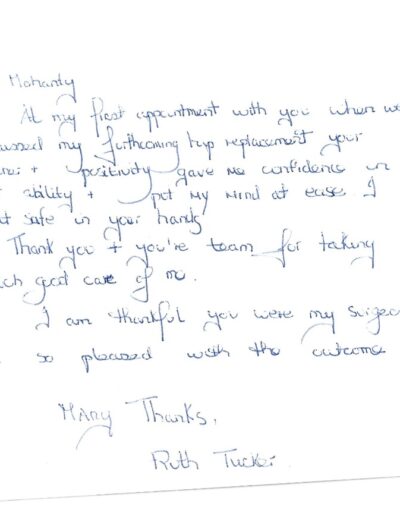 Mohanty
At my first appointment with you when we
my forthcoming hip replacement your
+ positivity gave me confidence in
ability + put my mind at ease I
safe in your hands
Thank you + you're team for taking
good care of me.
I am thankful you were my
so pleased with the outcome
Many Thanks,
Ruth Tucker